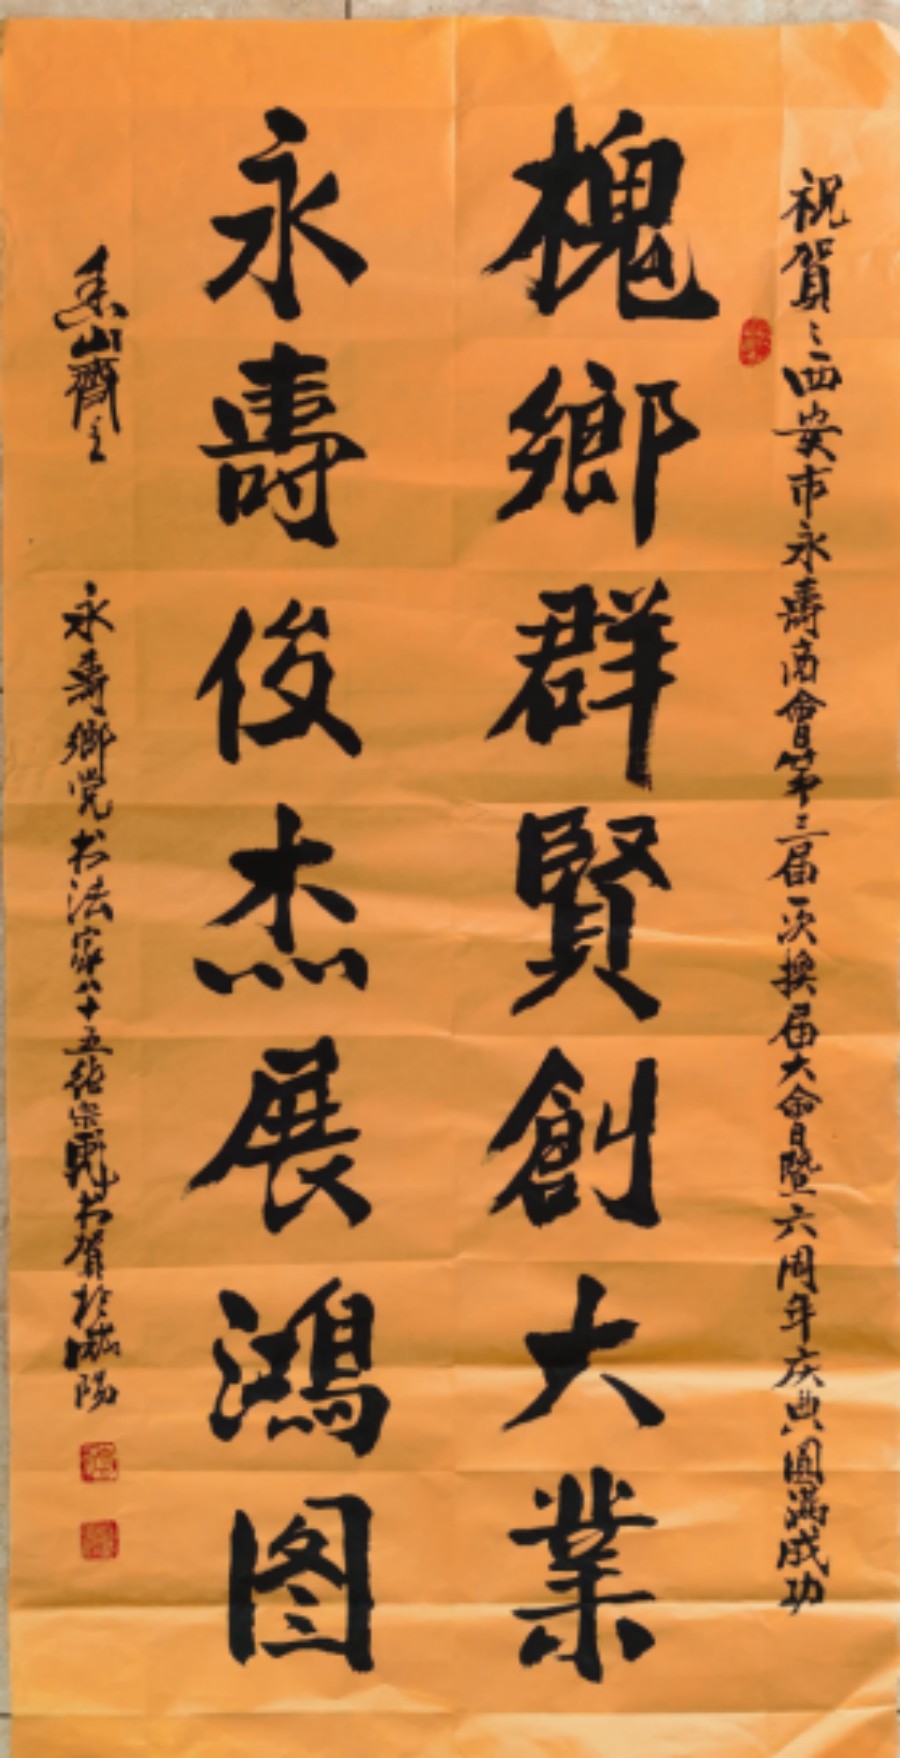 祝賀:西安市永壽商會第三届一次換届大會暨六周年庆典圓滿成功
槐鄉群賢創大業
永壽俊杰展鴻图
永壽鄉党书法家八十五 宗 书賀於 陽
山齋主